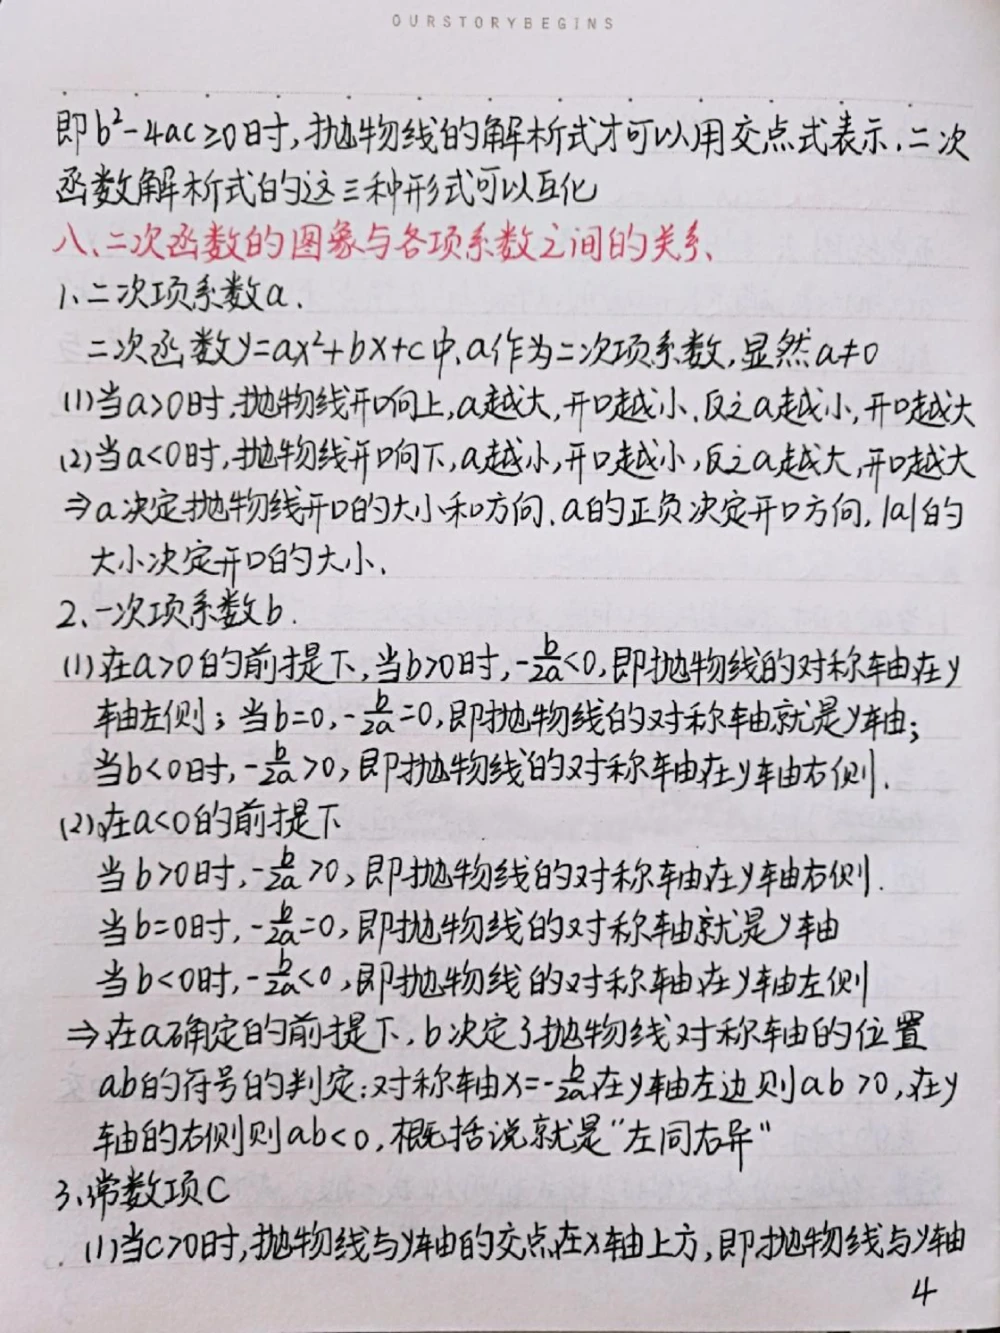 OURSTORYBEGINS
即b²-4ac≥0时,抛物线的解析式才可以用交点式表示.二次
函数解析式的这三种形式可以互化
八、二次函数的图象与各项系数之间的关系、
1、二次项系数a.
二次函数y=ax²+bx+c中,a作为二次项系数,显然a≠0
(1)当a>0时,抛物线开口向上,a越大,开口越小,反之a越小,开口越大
(2)当a<0时,抛物线开口向下,a越小,开口越小,反之a越大,开口越大
⇒a决定抛物线开口的大小和方向,a的正负决定开口方向,|a|的
大小决定开口的大小.
2、一次项系数b.
(1)在a>0的前提下,当b>0时,-b/2a<0,即抛物线的对称轴在y
轴左侧;当b=0,-b/2a=0,即抛物线的对称轴就是y轴;
当b<0时,-b/2a>0,即抛物线的对称轴在y轴右侧.
(2)在a<0的前提下
当b>0时,-b/2a>0,即抛物线的对称轴在y轴右侧.
当b=0时,-b/2a=0,即抛物线的对称轴就是y轴
当b<0时,-b/2a<0,即抛物线的对称轴在y轴左侧
⇒在a确定的前提下,b决定了抛物线对称轴的位置
ab的符号的判定:对称轴x=-b/2a在y轴左边则ab>0,在y
轴的右侧则ab<0,概括说就是"左同右异"
3、常数项C
(1)当c>0时,抛物线与y轴的交点在x轴上方,即抛物线与y轴
4